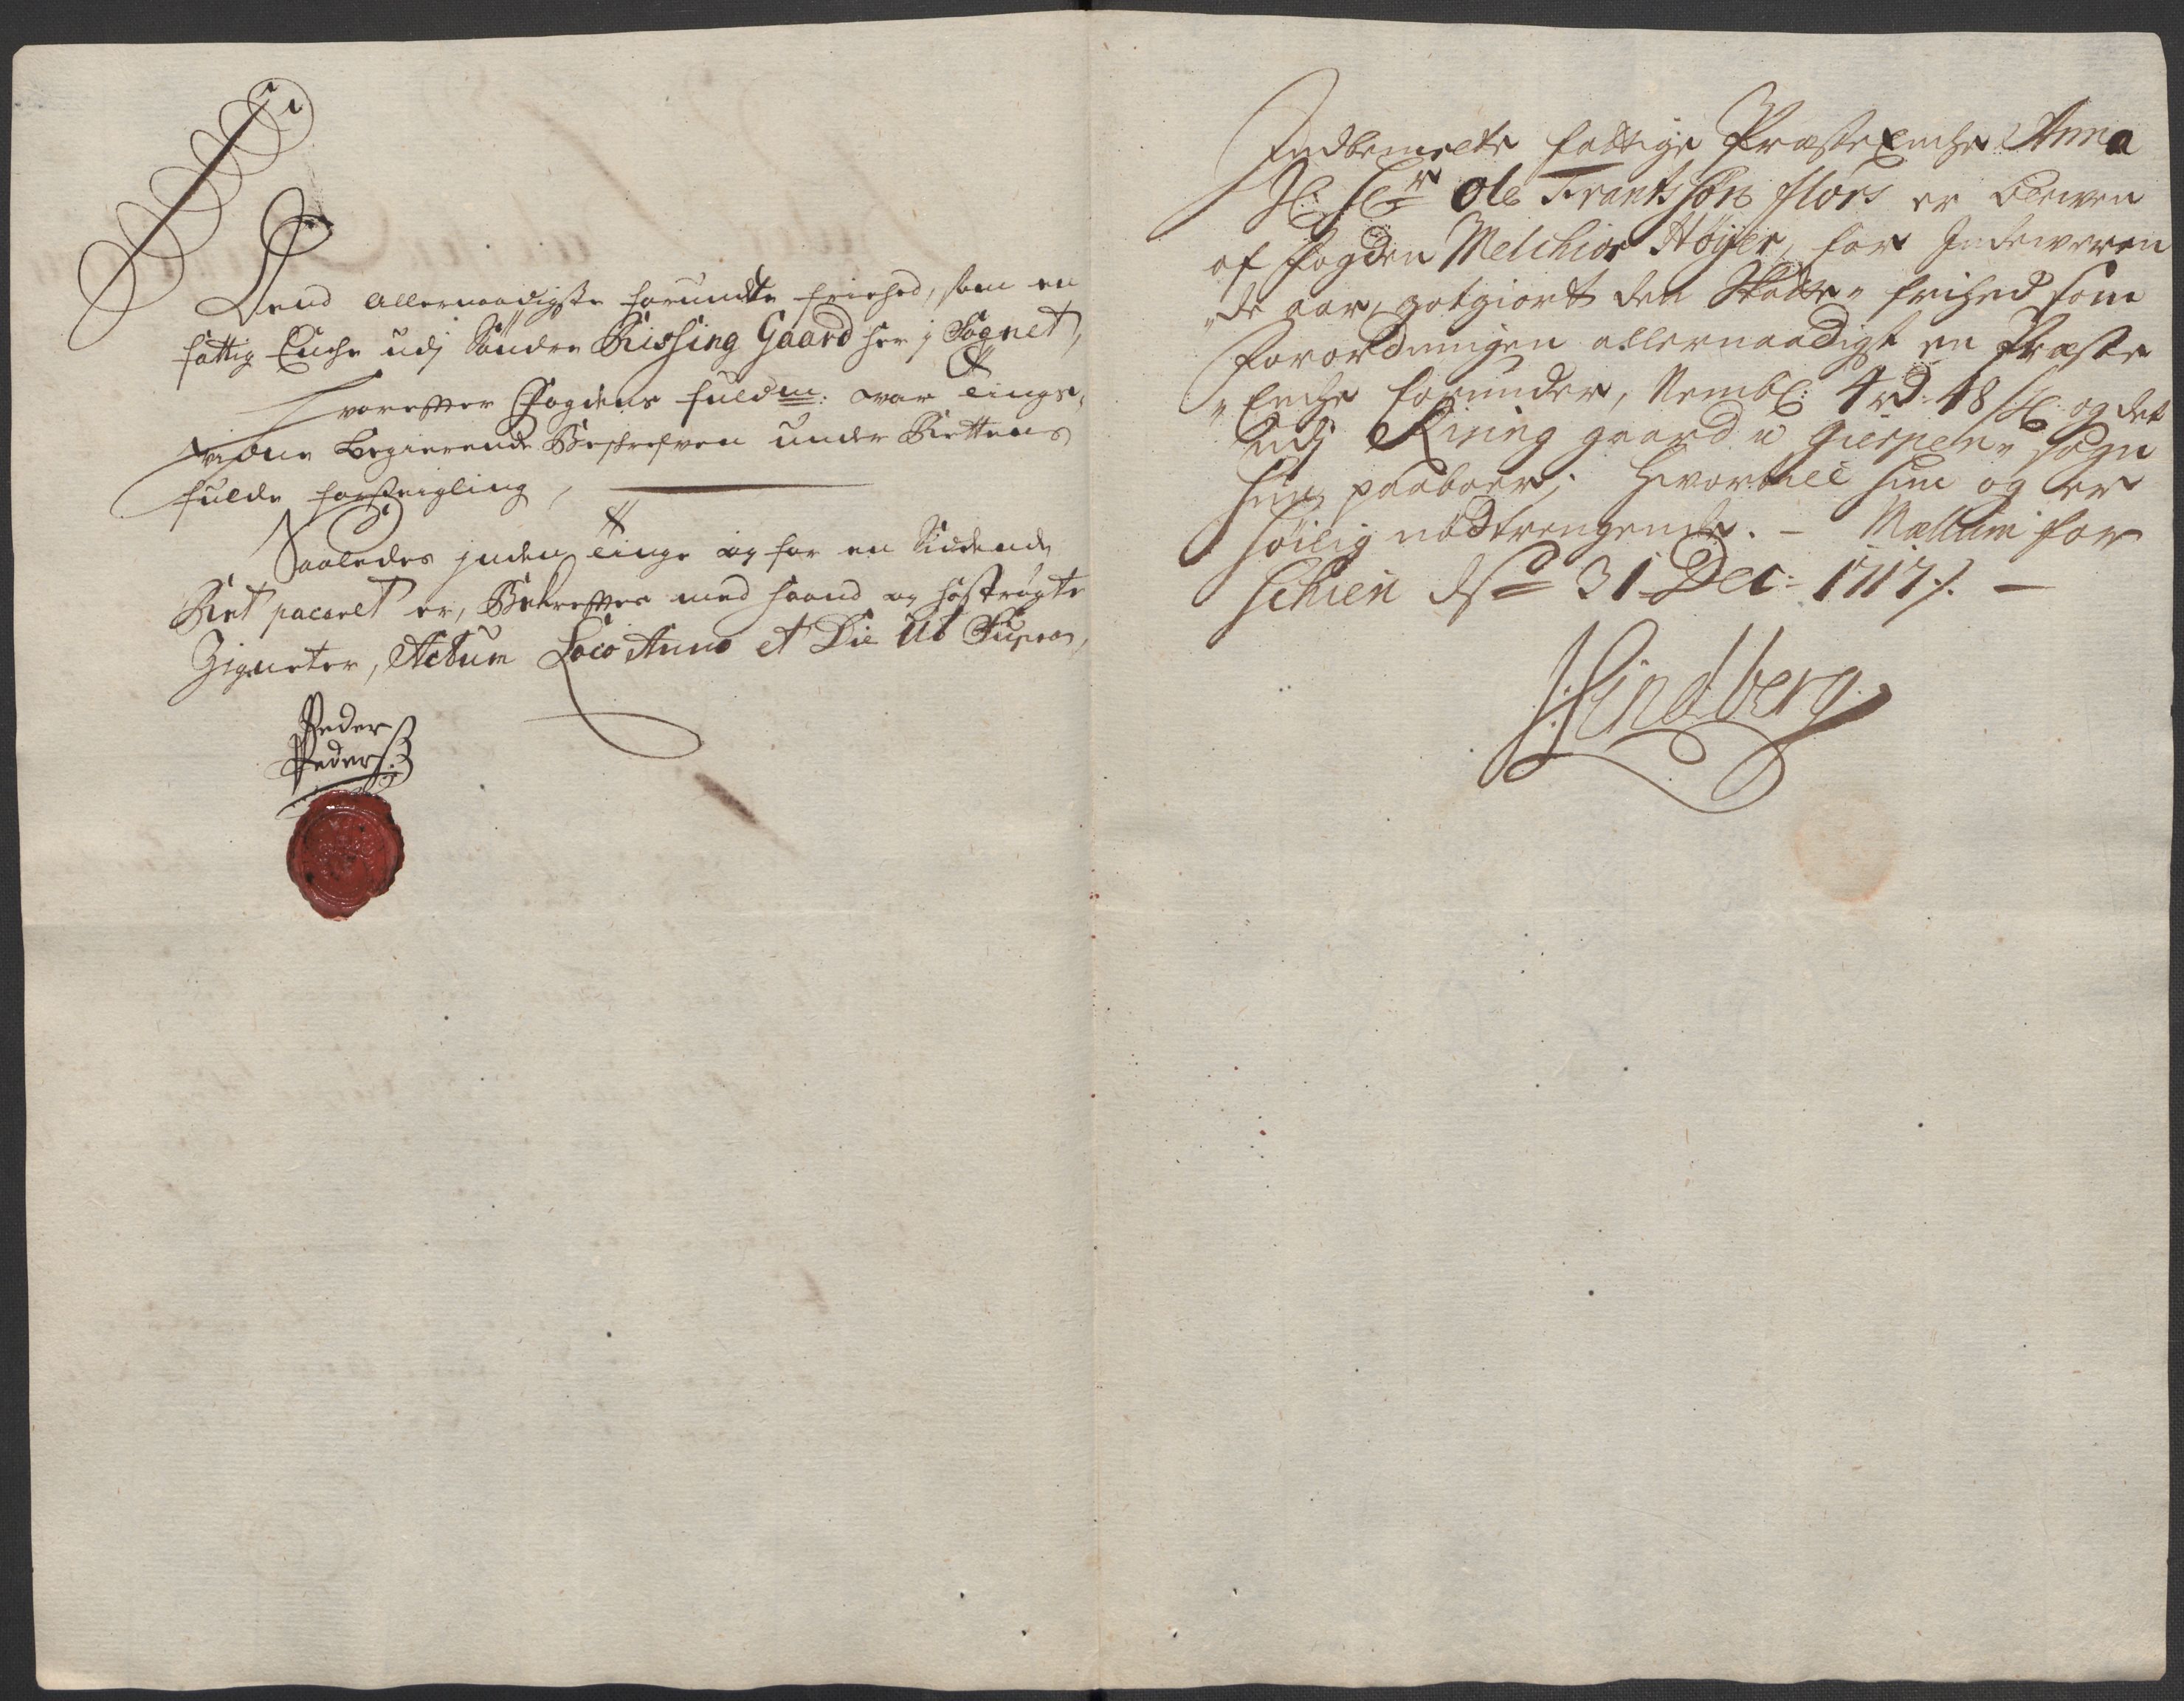 Dend allernaadigste forundte friehed, som en
fattig Enche udj Søndre Rissing Gaard her j Sognet,
Hvorefter Fogdens fuldm: var tings-
vidne Begierende Beskrefven under Rettens
fulde forseigling,
Saaledes inden tinge og for en Siddende
Ret paceret er, Bekrefter med haand og hostrøgte
Zigneter, Actum Loco Anno et Die Ut Supra,
Peder
Peders:
Indbemelte fattige Præste Enche Anna
Sl: Hr Ole Frantssøn flors er bleven
af fogden Melchior Höyer, for Indeweren
"de aar, gotgiort den Skatte" frihed som
Forordningen allernaadigst en Præste
"Enche forunder, Nembl: 4 rd 48 sk: og det
udj Rising gaard i Gierpen" Sogn
hun paaboer; hvortill hun og er
høilig nødtrengende. - Mællum for
Schien dend 31 Dec: 1717. -
Lindberg